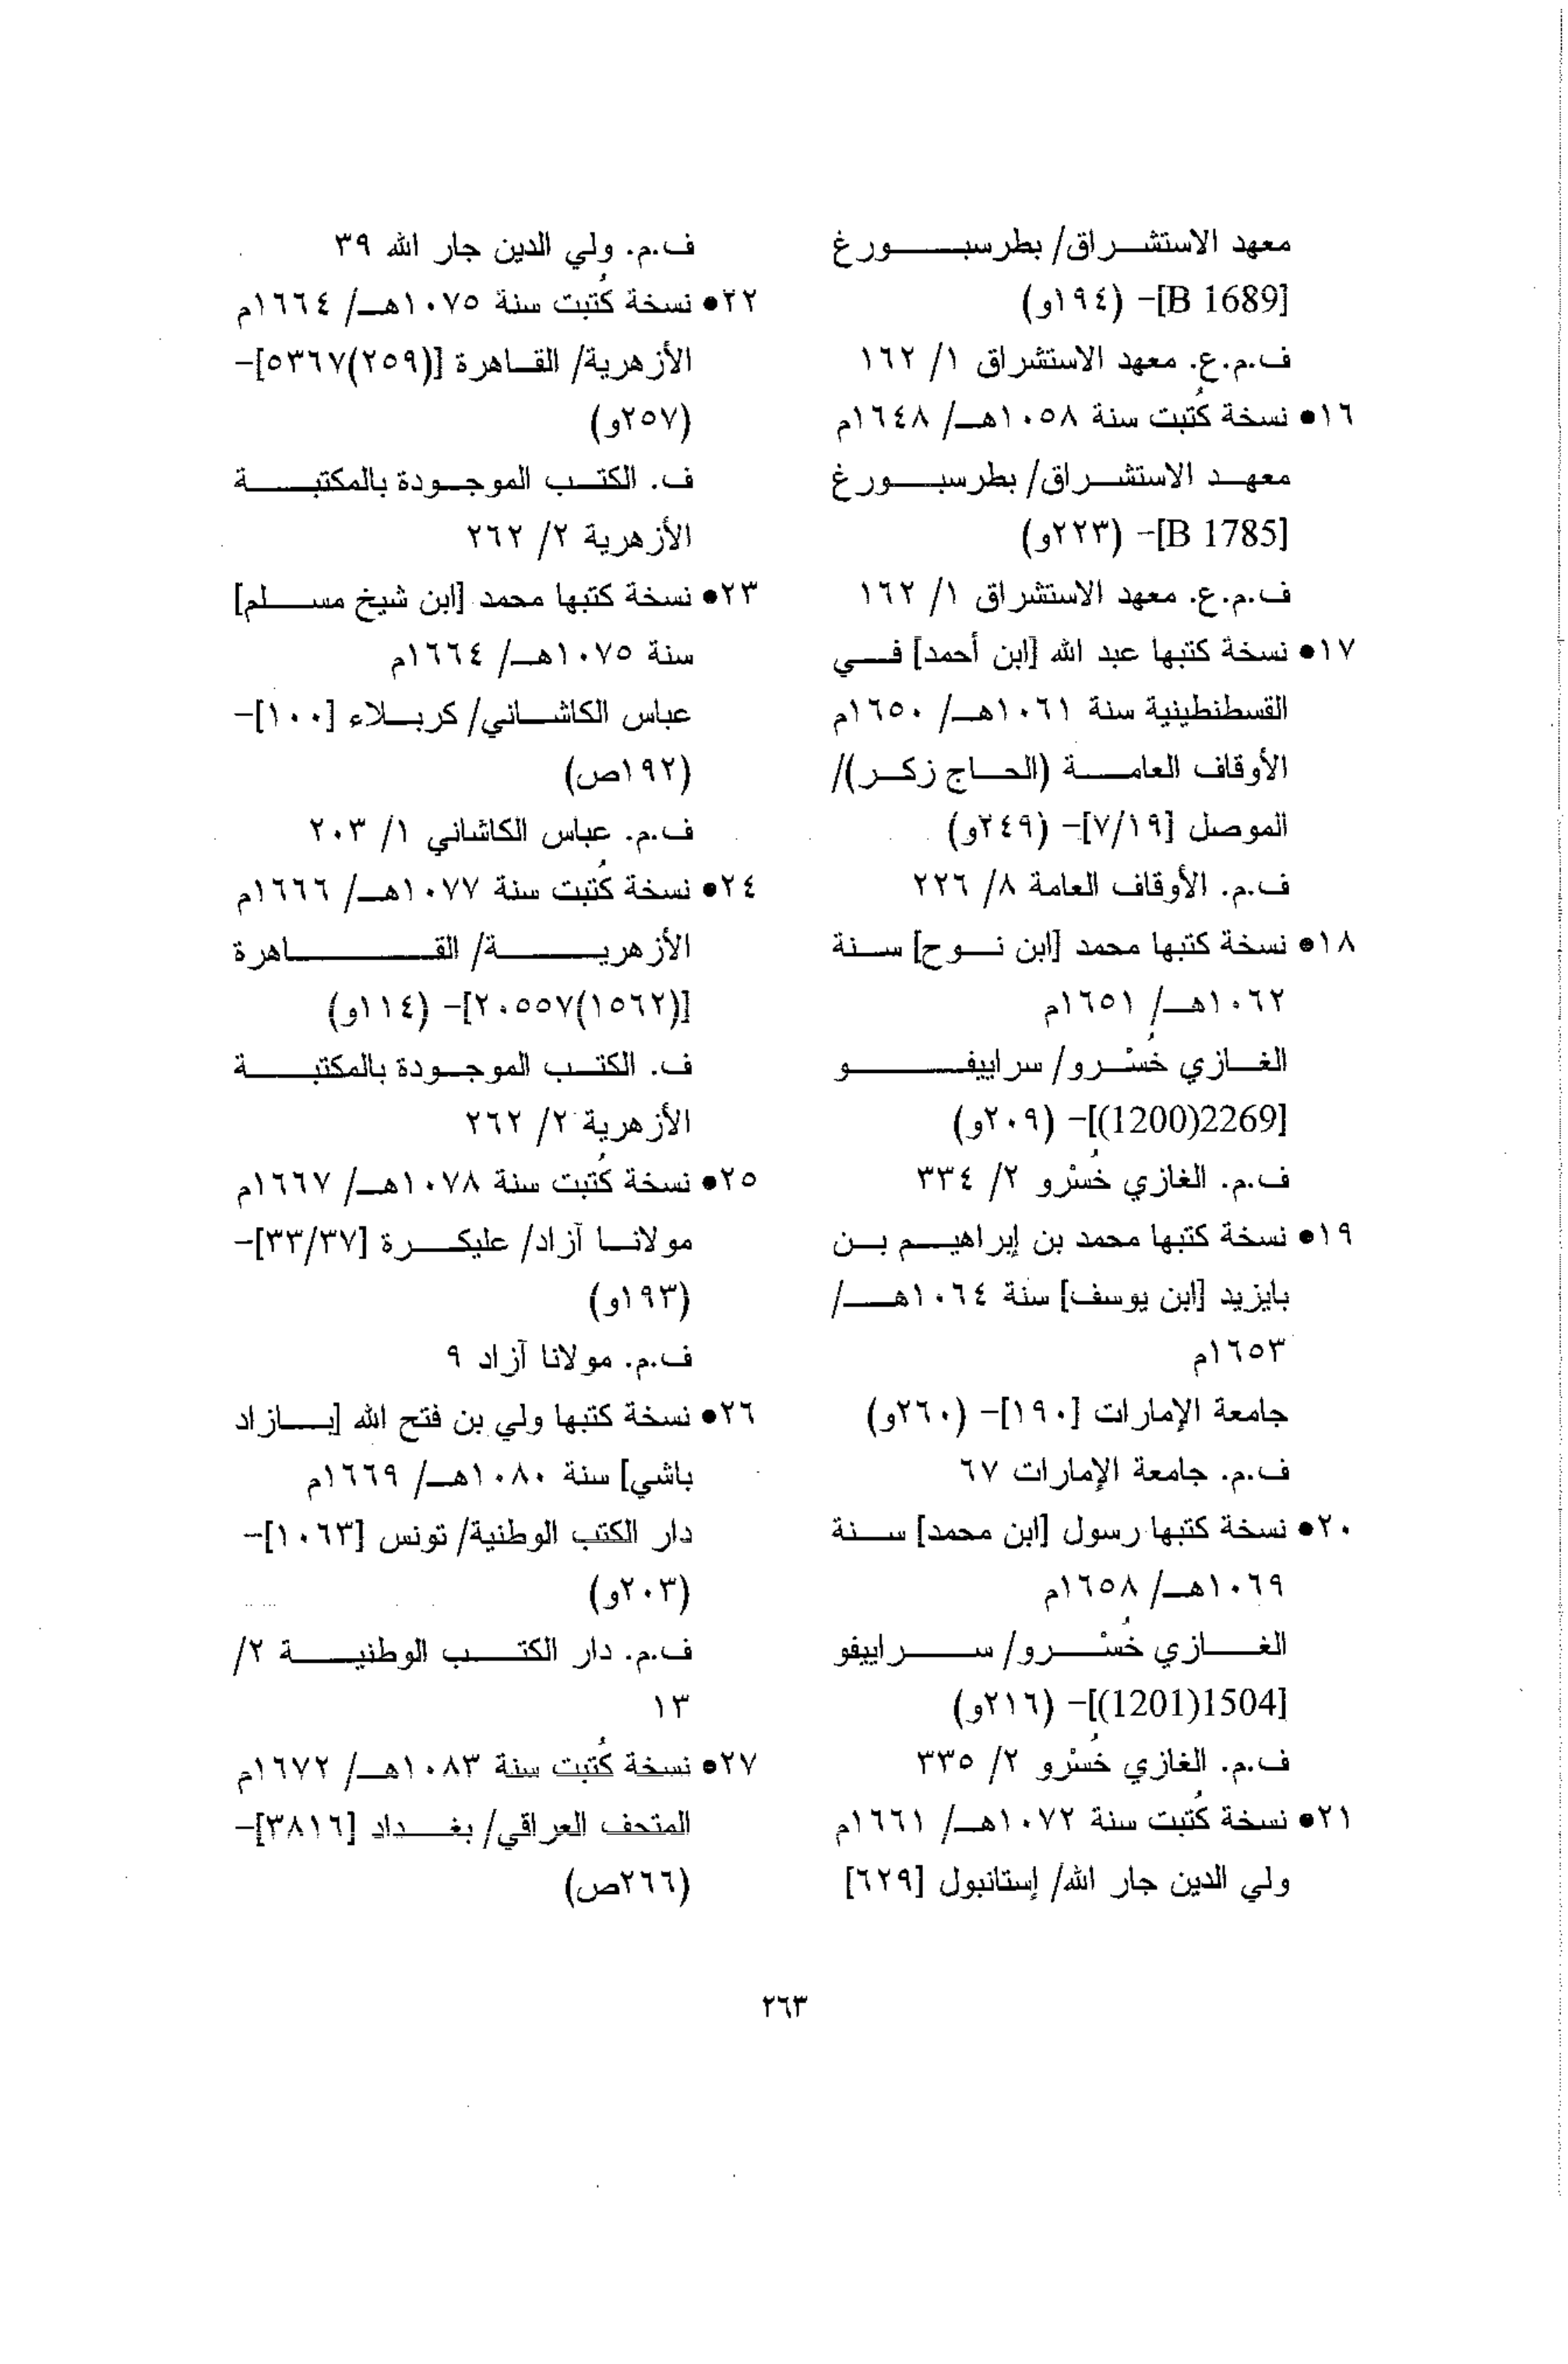 معهد الاستشراق/ بطرسبورغ
[B 1689]- (١٩٤و)
ف.م.ع. معهد الاستشراق ١/ ١٦٢
١٦● نسخة كُتبت سنة ١٠٥٨هـ/ ١٦٤٨م
معهد الاستشراق/ بطرسبورغ
[B 1785]- (٢٢٣و)
ف.م.ع. معهد الاستشراق ١/ ١٦٢
١٧● نسخة كتبها عبد الله [ابن أحمد] في
القسطنطينية سنة ١٠٦١هـ/ ١٦٥٠م
الأوقاف العامة (الحاج زكر)/
الموصل [٧/١٩]- (٢٤٩و)
ف.م. الأوقاف العامة ٨/ ٢٢٦
١٨● نسخة كتبها محمد [ابن نوح] سنة
١٠٦٢هـ/ ١٦٥١م
الغازي خُسْرو/ سراييفو
[2269(1200)]- (٢٠٩و)
ف.م. الغازي خُسْرو ٢/ ٣٣٤
١٩● نسخة كتبها محمد بن إبراهيم بن
بايزيد [ابن يوسف] سنة ١٠٦٤هـ/
١٦٥٣م
جامعة الإمارات [١٩٠]- (٢٦٠و)
ف.م. جامعة الإمارات ٦٧
٢٠● نسخة كتبها رسول [ابن محمد] سنة
١٠٦٩هـ/ ١٦٥٨م
الغازي خُسْرو/ سراييفو
[1504(1201)]- (٢١٦و)
ف.م. الغازي خُسْرو ٢/ ٣٣٥
٢١● نسخة كُتبت سنة ١٠٧٢هـ/ ١٦٦١م
ولي الدين جار الله/ إستانبول [٦٢٩]
ف.م. ولي الدين جار الله ٣٩
٢٢● نسخة كُتبت سنة ١٠٧٥هـ/ ١٦٦٤م
الأزهرية/ القاهرة [(٢٥٩)٥٣٦٧]-
(٢٥٧و)
ف. الكتب الموجودة بالمكتبة
الأزهرية ٢/ ٢٦٢
٢٣● نسخة كتبها محمد [ابن شيخ مسلم]
سنة ١٠٧٥هـ/ ١٦٦٤م
عباس الكاشاني/ كربلاء [١٠٠]-
(١٩٢ص)
ف.م. عباس الكاشاني ١/ ٢٠٣
٢٤● نسخة كُتبت سنة ١٠٧٧هـ/ ١٦٦٦م
الأزهرية/ القاهرة
[(١٥٦٢)٢٠٥٥٧]- (١١٤و)
ف. الكتب الموجودة بالمكتبة
الأزهرية ٢/ ٢٦٢
٢٥● نسخة كُتبت سنة ١٠٧٨هـ/ ١٦٦٧م
مولانا آزاد/ عليكرة [٣٣/٣٧]-
(١٩٣و)
ف.م. مولانا آزاد ٩
٢٦● نسخة كتبها ولي بن فتح الله [بازاد
باشي] سنة ١٠٨٠هـ/ ١٦٦٩م
دار الكتب الوطنية/ تونس [١٠٦٣]-
(٢٠٣و)
ف.م. دار الكتب الوطنية ٢/
١٣
٢٧● نسخة كُتبت سنة ١٠٨٣هـ/ ١٦٧٢م
المتحف العراقي/ بغداد [٣٨١٦]-
(٢٦٦ص)
٢٦٣